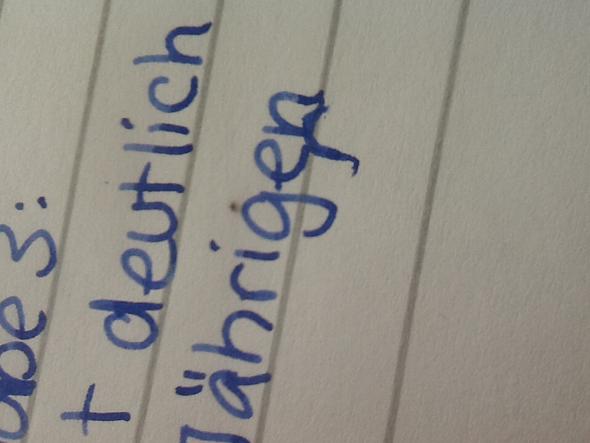 abe 3:
t deutlich
Jährigen